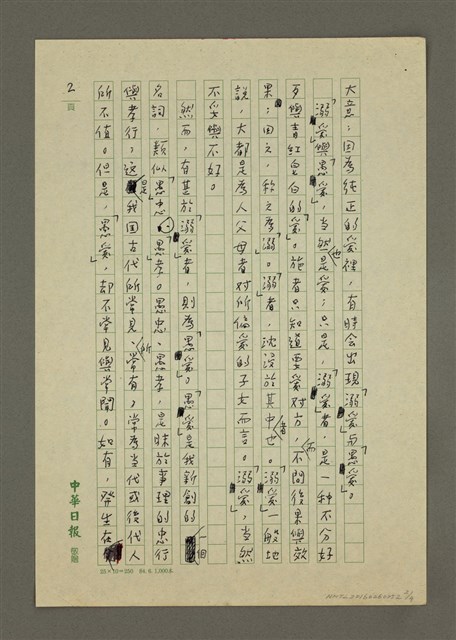 大意；因為純正的愛裡，有時会出現「溺愛」与「愚愛」。
「溺愛」與「愚愛」，当然也是愛；只是，「溺愛」者，是一種不分好
歹與青紅皂白的「愛」。施者只知道要愛对方，而不問後果與效
果；因之，称之為「溺」。「溺」者，沈没於其中者也。「溺愛」一般地
說，大都是為人父母者对所偏愛的子女而言。「溺愛」，当然
不妥與不好。
然而，有甚於「溺愛」者，則為「愚愛」。「愚愛」是我新創的一個
名詞，類似「愚忠」、「愚孝」。愚忠、愚孝，是昧於事理的忠行
與孝行，这是我国古代所常見、所常有，常為当代或後代人
所不值。但是，「愚愛」，却不常見與常聞。如有，發生在
2 頁
中華日報 稿紙
25×10=250 84.6.1,000本